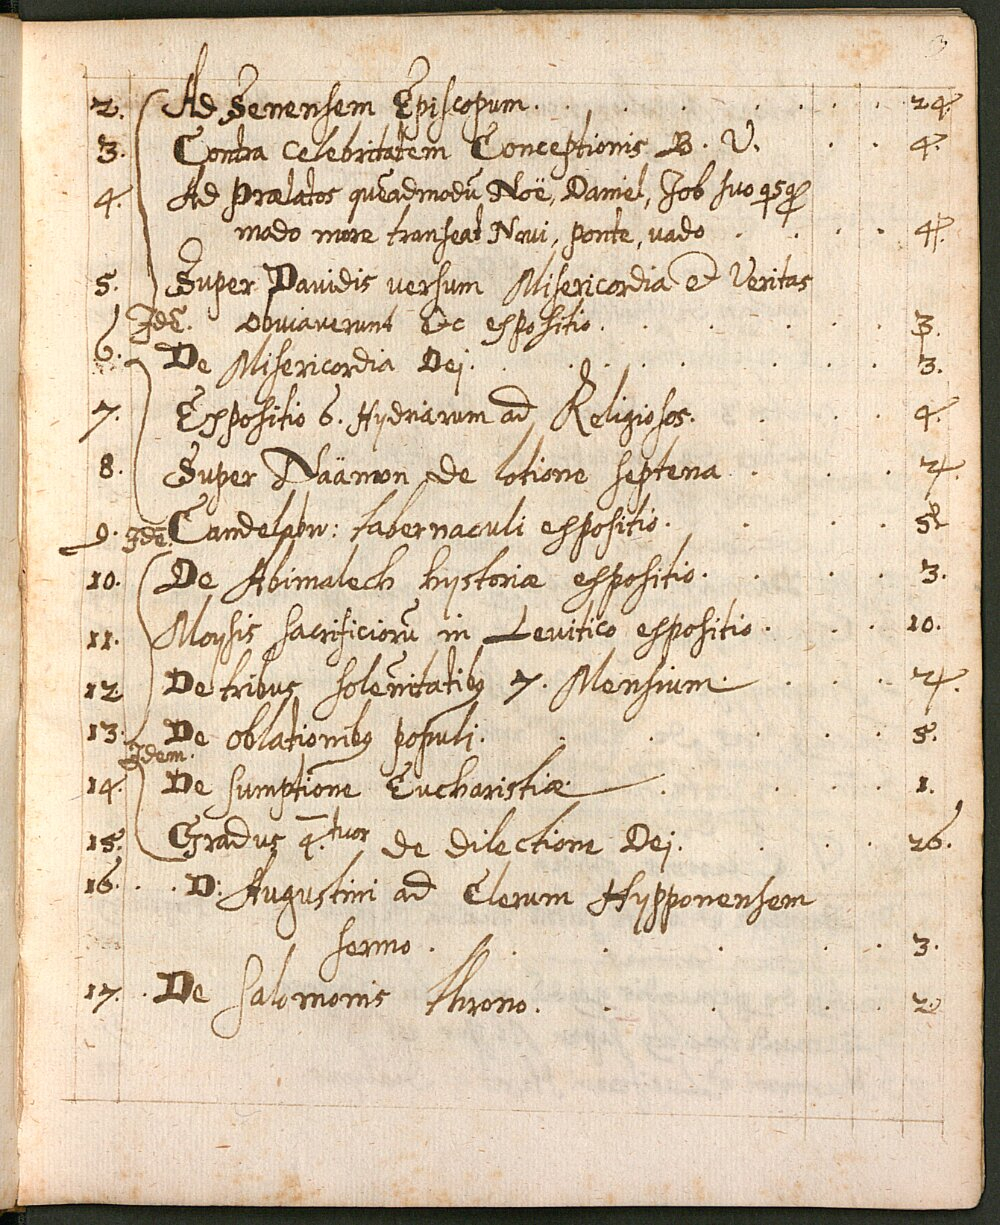 3
2. Ad Senensem Episcopum . . . . . . . 24
3. Contra celebritatem Conceptionis B. V. . . 4.
4. Ad Prælatos queadmodū Noë, Daniel, Job suo
modo more transeat Navi, ponte, vado . . . . 4.
5. Super Dauidis versum Misericordia et Veritas
Idē. obviaverunt &c expositio . . . . . . 3.
6. De Misericordia Dei. . . . . . . . 3.
7. Expositio 6. Hydriarum ad Religiosos. . . . 4.
8. Super Naämon de lotione septena . . . .
9. Idē. Candelabru: tabernaculi expositio . . . .
10. De Abimalech hystoriæ expositio . . . . 3.
11. Moysis sacrificiorū in Levitico expositio . . . 10.
12 De tribus solēnitatibꝫ 7. Mensium . . . .
13. De oblationibꝫ populi . . . . . . 5.
Idem.
14. De sumptione Eucharistiæ . . . . 1.
15. Gradus q̄.tuor de dilectione Dei . . . . 26.
16. . . D: Augustini ad Clerum Hypponensem
sermo . . . . . . . 3.
17. . De Salomonis throno . . . . . 2